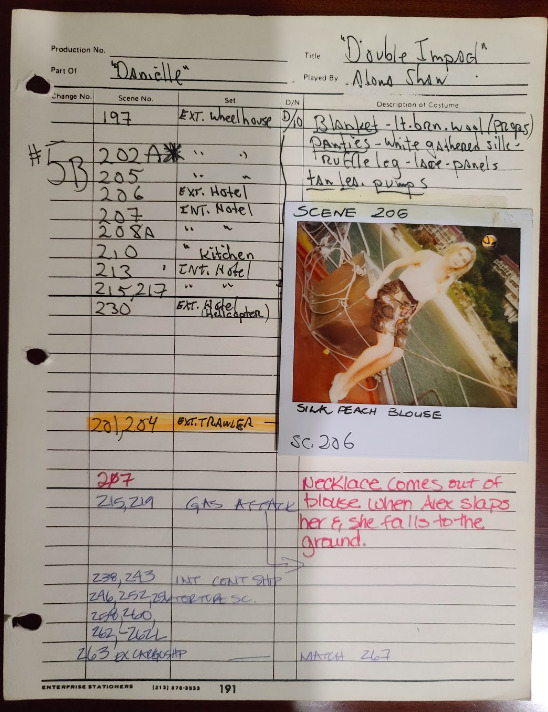 Production No.
Title "Double Impact"
Part Of "Danielle"
Played By Alona Shaw
Change No. Scene No. Set D/N Description of Costume
#5B
197 EXT. Wheelhouse D/10 Blanket - lt. brn. wool (props)
202A " " panties - white gathered silk -
205 " " ruffle leg - lace - panels
206 EXT. Hotel tan les. pumps
207 INT. Hotel
208A " "
210 " Kitchen
213 INT. Hotel
215, 217 " "
230 EXT. Hotel
(Helicopter)
SCENE 206
SINK PEACH BLOUSE
SC. 206
201, 204 EXT. TRAWLER -
207 Necklace comes out of
215, 219 GAS ATTACK blouse when Alex slaps
her & she falls to the
ground.
238, 243 INT CONT SHIP
246, 252, TORTURE SC.
260
262,
263 EX CARGOSHIP MATCH 267
ENTERPRISE STATIONERS (213) 876-3533 191